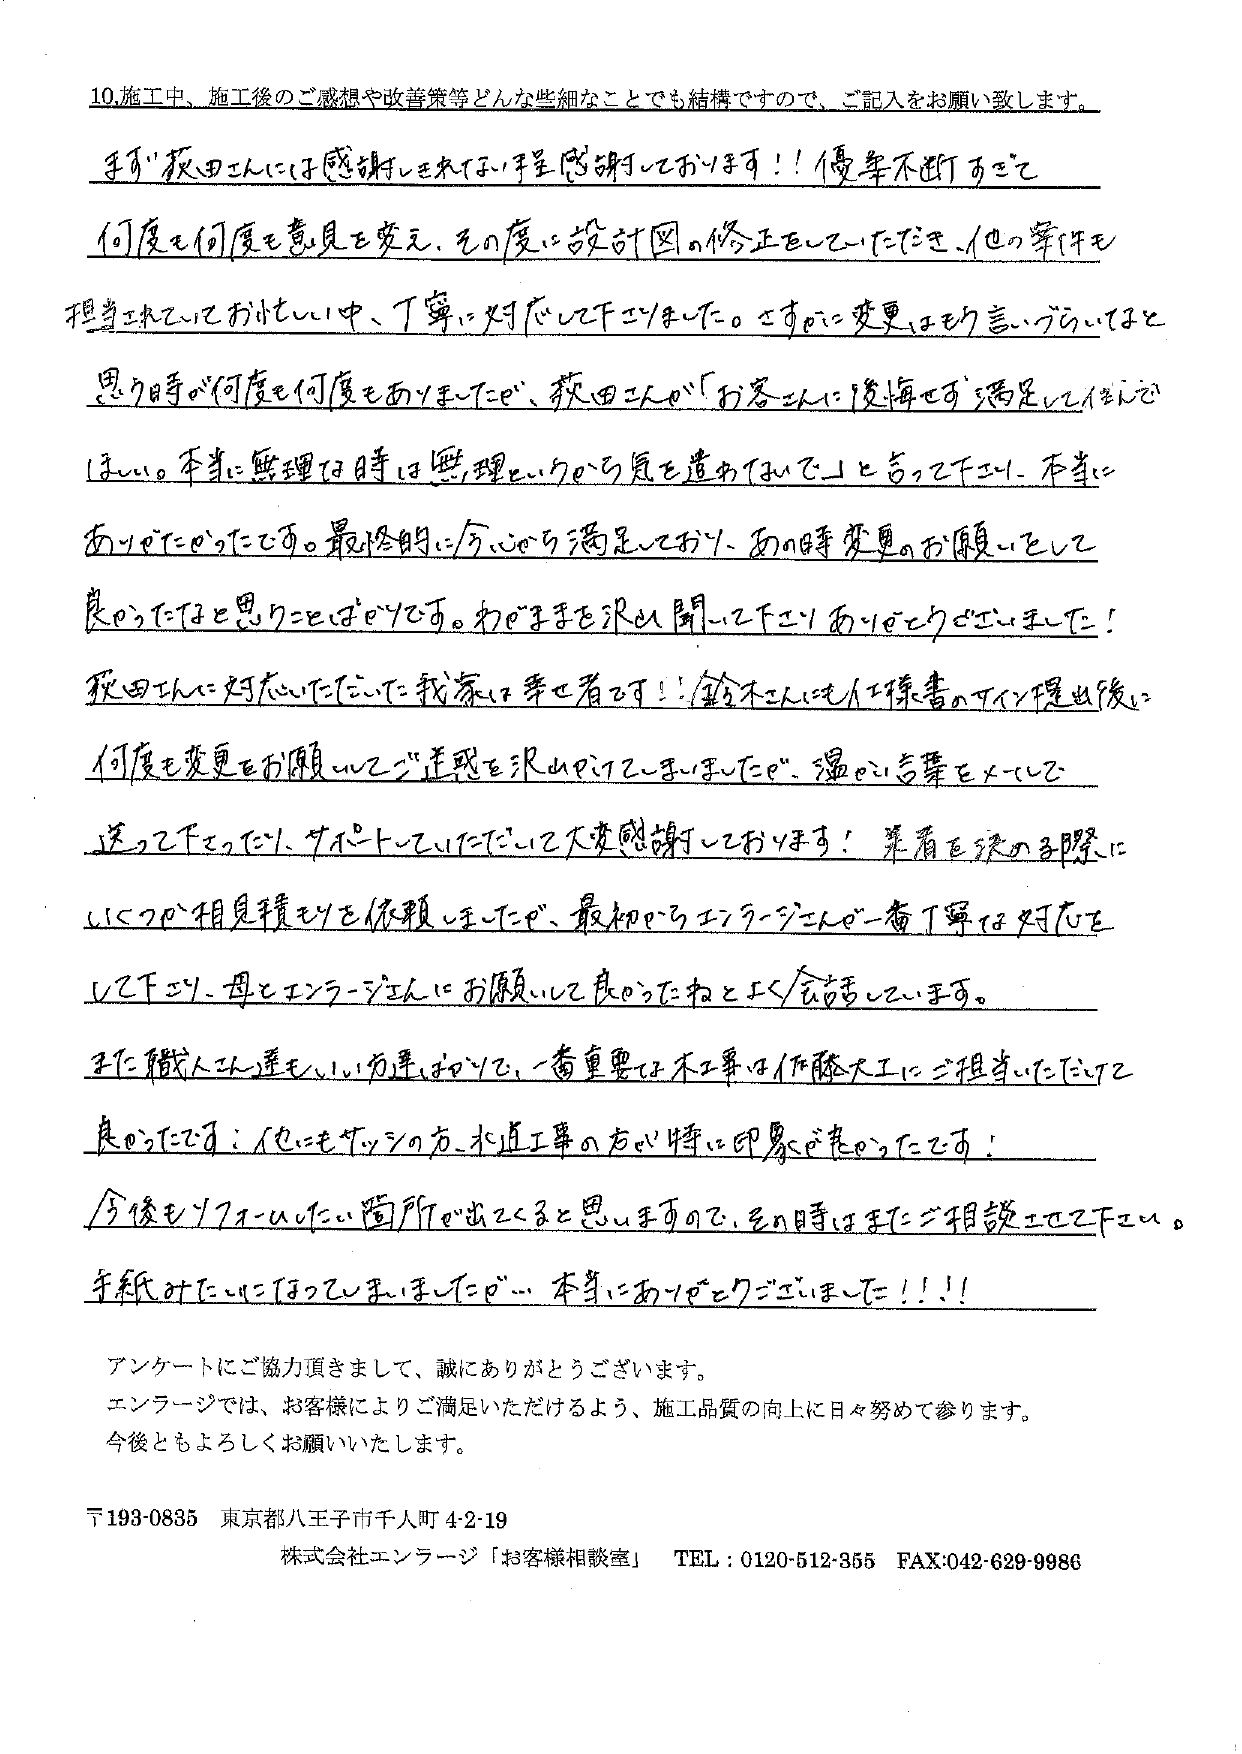 10.施工中、施工後のご感想や改善策等どんな些細なことでも結構ですので、ご記入をお願い致します。
まず荻田さんには感謝しきれない程感謝しております!!優柔不断すぎて
何度も何度も意見を変え、その度に設計図の修正をしていただき、他の案件も
担当されていてお忙しい中、丁寧に対応して下さりました。さすがに変更はもう言いづらいなと
思う時が何度も何度もありましたが、荻田さんが「お客さんに後悔せず満足して住んで
ほしい。本当に無理な時は無理というから気を遣わないで」と言って下さり、本当に
ありがたかったです。最終的に今心から満足しており、あの時変更のお願いをして
良かったなと思うことばかりです。わがままを沢山聞いて下さりありがとうございました!
荻田さんに対応いただいた我家は幸せ者です!!鈴木さんにも仕様書のサイン提出後に
何度も変更をお願いしてご迷惑を沢山かけてしまいましたが、温かい言葉をメールで
送って下さったり、サポートしていただいて大変感謝しております!業者を決める際に
いくつか相見積もりを依頼しましたが、最初からエンラージさんが一番丁寧な対応を
して下さり、母とエンラージさんにお願いして良かったねとよく会話しています。
また職人さん達もいい方達ばかりで、一番重要な木工事は佐藤大工にご担当いただけて
良かったです!他にもサッシの方、水道工事の方が特に印象が良かったです!
今後もリフォームしたい箇所が出てくると思いますので、その時はまたご相談させて下さい。
手紙みたいになってしまいましたが… 本当にありがとうございました!!!!
アンケートにご協力頂きまして、誠にありがとうございます。
エンラージでは、お客様によりご満足いただけるよう、施工品質の向上に日々努めて参ります。
今後ともよろしくお願いいたします。
〒193-0835 東京都八王子市千人町 4-2-19
株式会社エンラージ「お客様相談室」 TEL：0120-512-355 FAX:042-629-9986